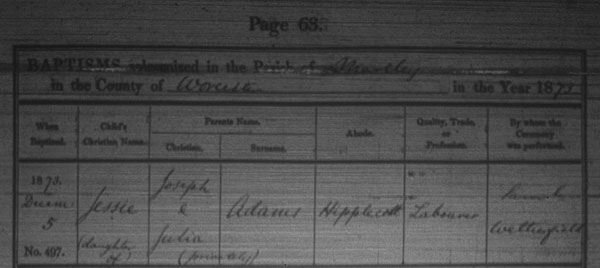 Page 63.
BAPTISMS solemnized in the Parish of
in the County of Worcester in the Year 1873
When Baptized. Child's Christian Name. Parents Name. Abode. Quality, Trade, or Profession. By whom the Ceremony was performed.
Christian. Surname.
1873.
Joseph
5 Jessie & Adams Hipplecott Labourer
Julia
No. 497. (daughter of) (privately)